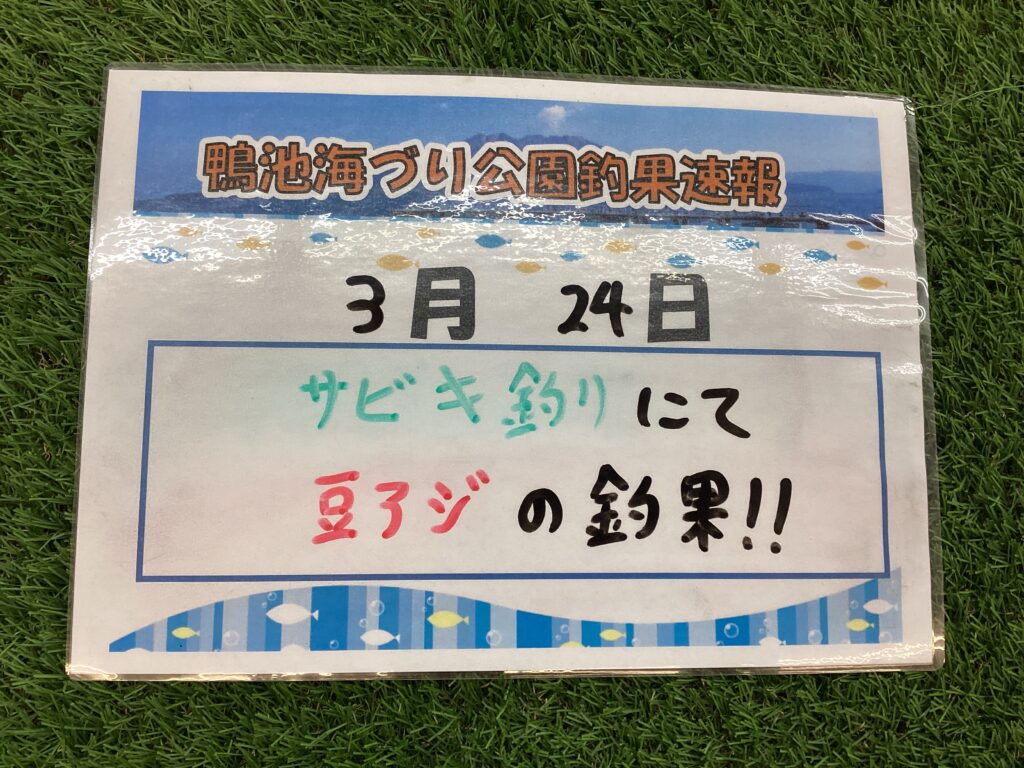 鴨池海づり公園釣果速報
3月 24日
サビキ釣りにて
豆アジの釣果!!